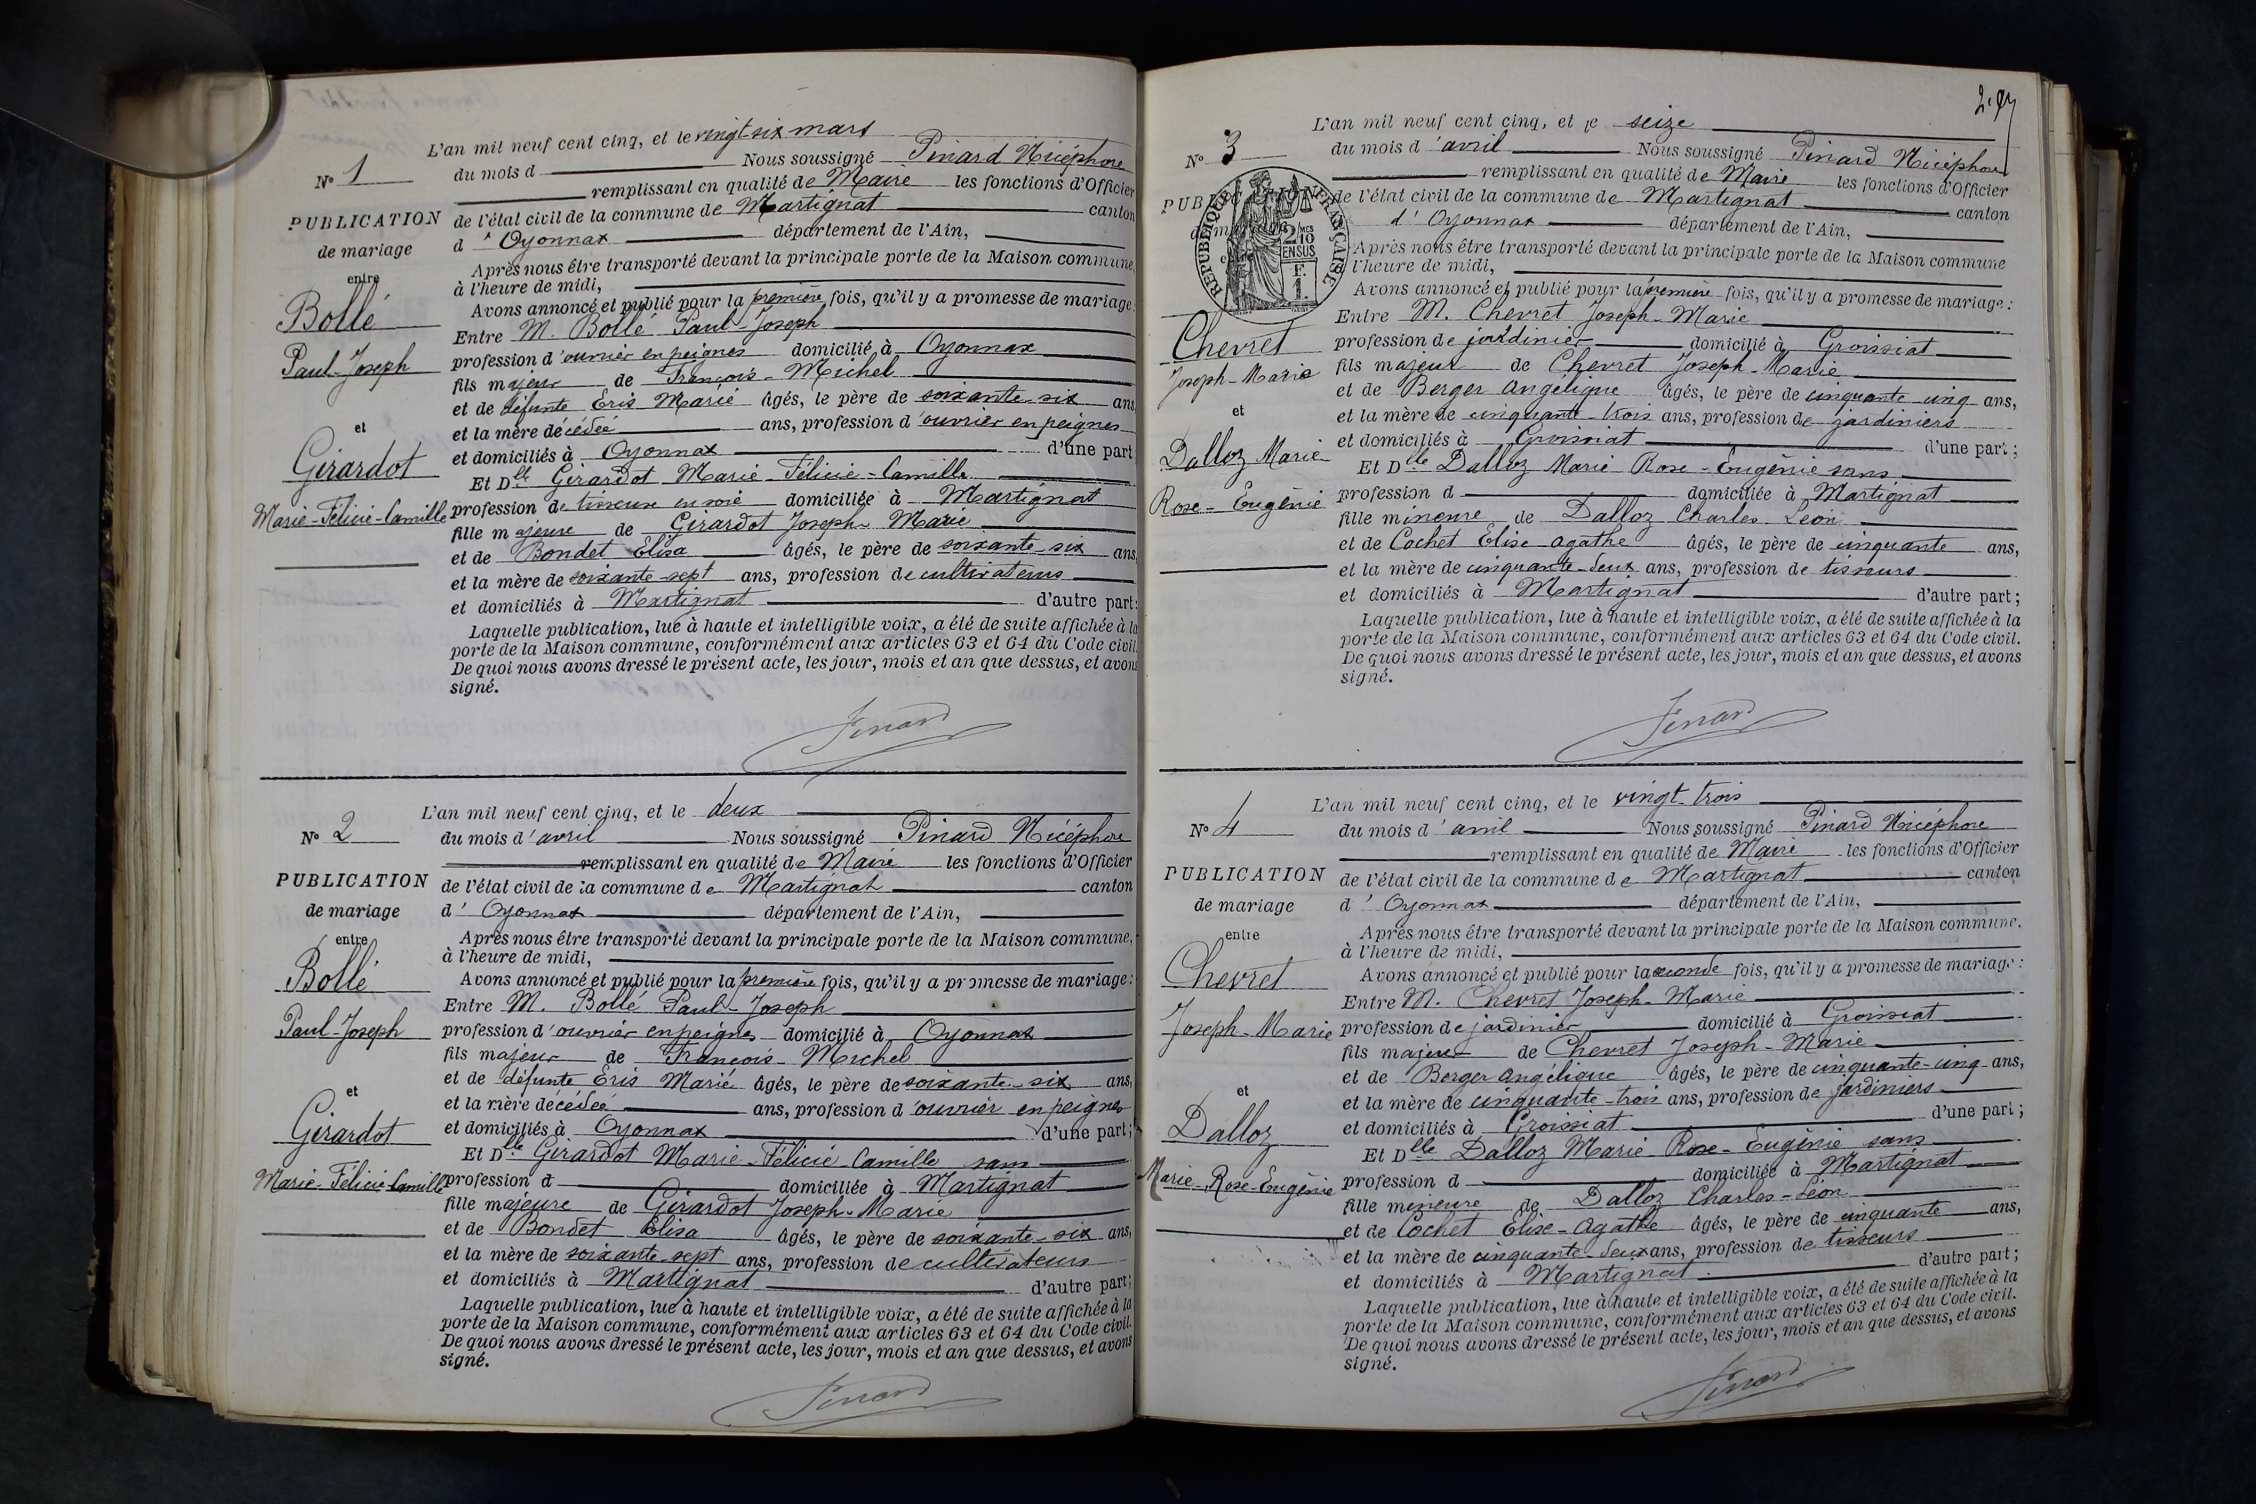 L'an mil neuf cent cinq, et le vingt six mars
N° 1
du mois d Nous soussigné Pinard Nicéphore
remplissant en qualité de Maire les fonctions d'Officier
PUBLICATION
de mariage
entre
Bollé
Paul-Joseph
et
Girardot
Marie-Félicie-Camille
de l'état civil de la commune de Martignat canton
d' Oyonnax département de l'Ain,
Après nous être transporté devant la principale porte de la Maison commune,
à l'heure de midi,
Avons annoncé et publié pour la première fois, qu'il y a promesse de mariage:
Entre M. Bollé Paul Joseph
profession d'ouvrier en peignes domicilié à Oyonnax
fils majeur de François-Michel
et de défunte Eris Marie âgés, le père de soixante-six ans
et la mère décédée ans, profession d'ouvrier en peignes
et domiciliés à Oyonnax d'une part
Et Dlle Girardot Marie-Félicie-Camille
profession de tisseuse en soie domiciliée à Martignat
fille majeure de Girardot Joseph-Marie
et de Bondet Elisa âgés, le père de soixante-six ans
et la mère de soixante-sept ans, profession de cultivateurs
et domiciliés à Martignat d'autre part;
Laquelle publication, lue à haute et intelligible voix, a été de suite affichée à la
porte de la Maison commune, conformément aux articles 63 et 64 du Code civil.
De quoi nous avons dressé le présent acte, les jour, mois et an que dessus, et avons
signé.
Pinard
L'an mil neuf cent cinq, et le deux
N° 2
du mois d'avril Nous soussigné Pinard Nicéphore
remplissant en qualité de Maire les fonctions d'Officier
PUBLICATION
de mariage
entre
Bollé
Paul-Joseph
et
Girardot
Marie-Félicie-Camille
de l'état civil de la commune de Martignat canton
d' Oyonnax département de l'Ain,
Après nous être transporté devant la principale porte de la Maison commune,
à l'heure de midi,
Avons annoncé et publié pour la première fois, qu'il y a promesse de mariage:
Entre M. Bollé Paul-Joseph
profession d'ouvrier en peignes domicilié à Oyonnax
fils majeur de François-Michel
et de défunte Eris Marie âgés, le père de soixante-six ans,
et la mère décédée ans, profession d'ouvrier en peignes
et domiciliés à Oyonnax d'une part;
Et Dlle Girardot Marie-Félicie Camille sans
profession d domiciliée à Martignat
fille majeure de Girardot Joseph-Marie
et de Bondet Elisa âgés, le père de soixante-six ans,
et la mère de soixante-sept ans, profession de cultivateurs
et domiciliés à Martignat d'autre part;
Laquelle publication, lue à haute et intelligible voix, a été de suite affichée à la
porte de la Maison commune, conformément aux articles 63 et 64 du Code civil.
De quoi nous avons dressé le présent acte, les jour, mois et an que dessus, et avons
signé.
Pinard
L'an mil neuf cent cinq, et le seize
N° 3
du mois d'avril Nous soussigné Pinard Nicéphore
remplissant en qualité de Maire les fonctions d'Officier
RÉPUBLIQUE FRANÇAISE
2/10 MES
EN SUS
F.
1.
Chevret
Joseph-Marie
et
Dalloz Marie
Rose-Eugénie
de l'état civil de la commune de Martignat canton
d' Oyonnax département de l'Ain,
Après nous être transporté devant la principale porte de la Maison commune
l'heure de midi,
Avons annoncé et publié pour la première fois, qu'il y a promesse de mariage:
Entre M. Chevret Joseph-Marie
profession de jardinier domicilié à Groissiat
fils majeur de Chevret Joseph-Marie
et de Berger Angélique âgés, le père de cinquante-cinq ans,
et la mère de cinquante-trois ans, profession de jardiniers
et domiciliés à Groissiat d'une part;
Et Dlle Dalloz Marie Rose-Eugénie sans
profession d domiciliée à Martignat
fille mineure de Dalloz Charles-Léon
et de Cochet Elise agathe âgés, le père de cinquante ans,
et la mère de cinquante-deux ans, profession de tisseurs
et domiciliés à Martignat d'autre part;
Laquelle publication, lue à haute et intelligible voix, a été de suite affichée à la
porte de la Maison commune, conformément aux articles 63 et 64 du Code civil.
De quoi nous avons dressé le présent acte, les jour, mois et an que dessus, et avons
signé.
Pinard
L'an mil neuf cent cinq, et le vingt-trois
N° 4
du mois d'avril Nous soussigné Pinard Nicéphore
remplissant en qualité de Maire les fonctions d'Officier
PUBLICATION
de mariage
entre
Chevret
Joseph-Marie
et
Dalloz
Marie-Rose-Eugénie
de l'état civil de la commune de Martignat canton
d' Oyonnax département de l'Ain,
Après nous être transporté devant la principale porte de la Maison commune,
à l'heure de midi,
Avons annoncé et publié pour la seconde fois, qu'il y a promesse de mariage:
Entre M. Chevret Joseph-Marie
profession de jardinier domicilié à Groissiat
fils majeur de Chevret Joseph-Marie
et de Berger Angélique âgés, le père de cinquante-cinq ans,
et la mère de cinquante-trois ans, profession de jardiniers
et domiciliés à Groissiat d'une part;
Et Dlle Dalloz Marie Rose-Eugénie sans
profession d domiciliée à Martignat
fille mineure de Dalloz Charles-Léon
et de Cochet Elise-Agathe âgés, le père de cinquante ans,
et la mère de cinquante-deux ans, profession de tisseurs
et domiciliés à Martignat d'autre part;
Laquelle publication, lue à haute et intelligible voix, a été de suite affichée à la
porte de la Maison commune, conformément aux articles 63 et 64 du Code civil.
De quoi nous avons dressé le présent acte, les jour, mois et an que dessus, et avons
signé.
Pinard